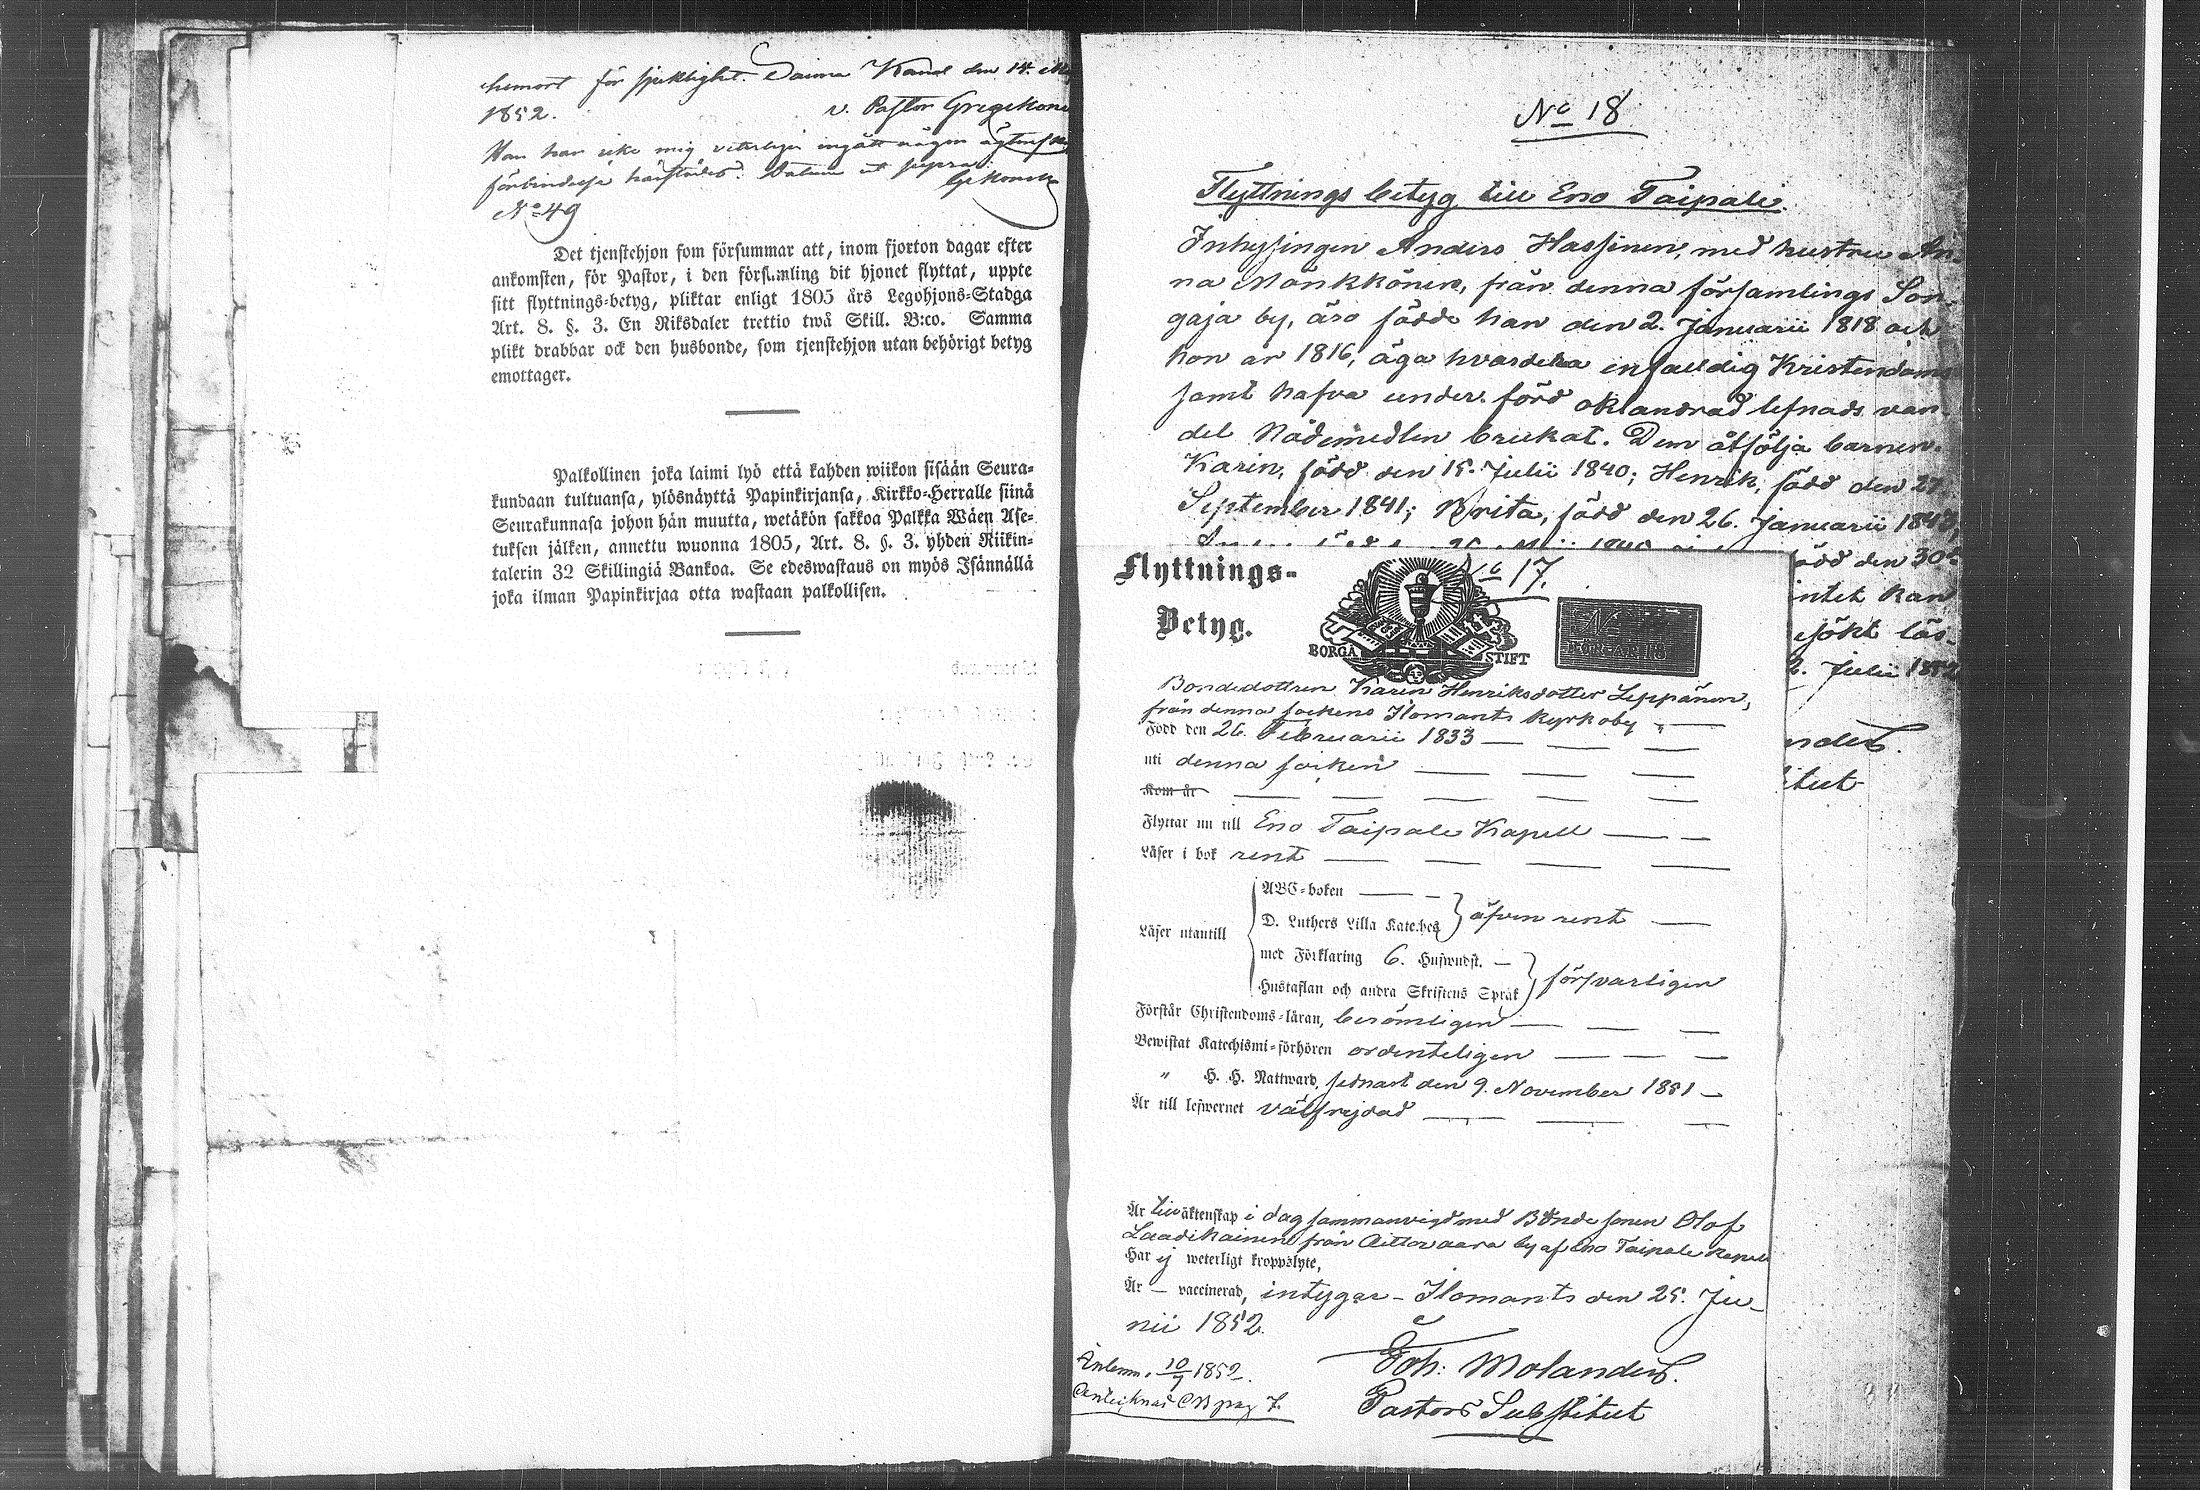 hemort för sjuklighet. Saima Kanal den 14.
1852. v. Pastor
Han har icke mig veterligen ingått någon
förbindelse härstädes. Datum ut supra.
No 49
Det tjenstehjon som försummar att, inom fjorton dagar efter
ankomsten, för Pastor, i den församling dit hjonet flyttat, uppte
sitt flyttnings-betyg, pliktar enligt 1805 års Legohjons-Stadga
Art. 8. §. 3. En Riksdaler trettio twå Skill. B:co. Samma
plikt drabbar ock den husbonde, som tjenstehjon utan behörigt betyg
emottager.
Palkollinen joka laimi lyö että kahden wiikon sisään Seura-
kundaan tultuansa, ylösnäyttä Papinkirjansa, Kirkko-Herralle siinä
Seurakunnasa johon hän muutta, wetäkön sakkoa Palkka Wäen Ase-
tuksen jälken, annettu wuonna 1805, Art. 8. §. 3. yhden Riikin-
talerin 32 Skillingiä Bankoa. Se edeswastaus on myös Isännällä
joka ilman Papinkirjaa otta wastaan palkollisen.
No 18
Flyttnings betyg till Eno Taipale.
Inhysingen Anders Hassinen, med hustru An-
na Mönkkönen, från denna församlings Son-
gaja by, äro födde han den 2. Januarii 1818 och
hon år 1816, äga hvardera enfaldig Kristendom
samt hafva under förd oklandrad lefnads van-
del Nådemedlen brukat. Dem åtfölja barnen.
Karin, född den 15. Julii 1840; Henrik, född den 27.
September 1841; Brita, född den 26. Januarii 1843;
född den 30
intet kan
esökt läs-
2. Julii 1852
nder.
titut
Flyttnings-
Betyg.
No 17.
BORGÅ STIFT
Bondedottren Karin Henriksdotter Leppänen,
från denna sockens Ilomants Kyrkoby
Född den 26. Februarii 1833
uti denna socken
Kom år
Flyttar nu till Eno Taipale Kapell
Läser i bok rent
ABC-boken
D. Luthers Lilla Kateches äfven rent
Läser utantill
med Förklaring 6. Hufwudst.
Hustaflan och andra Skriftens Språk försvarligen
Förstår Christendoms-läran, berömligen
Bewistat Katechismi-förhören ordenteligen
" H. H. Nattward, sednast den 9. November 1851
Är till lefwernet välfrejdad
Är till äktenskap i dag sammanvigd med Bondesonen Olof
Laadikainen från Aittovaara by af Eno Taipale Kapell
Har ej weterligt kroppslyte,
Är — vaccinerad, intygar — Ilomants den 25. Ju-
nii 1852.
Joh: Molander.
Pastors Substitut
Inlemn. 10/7 1852.
Antecknad CB pag 7.